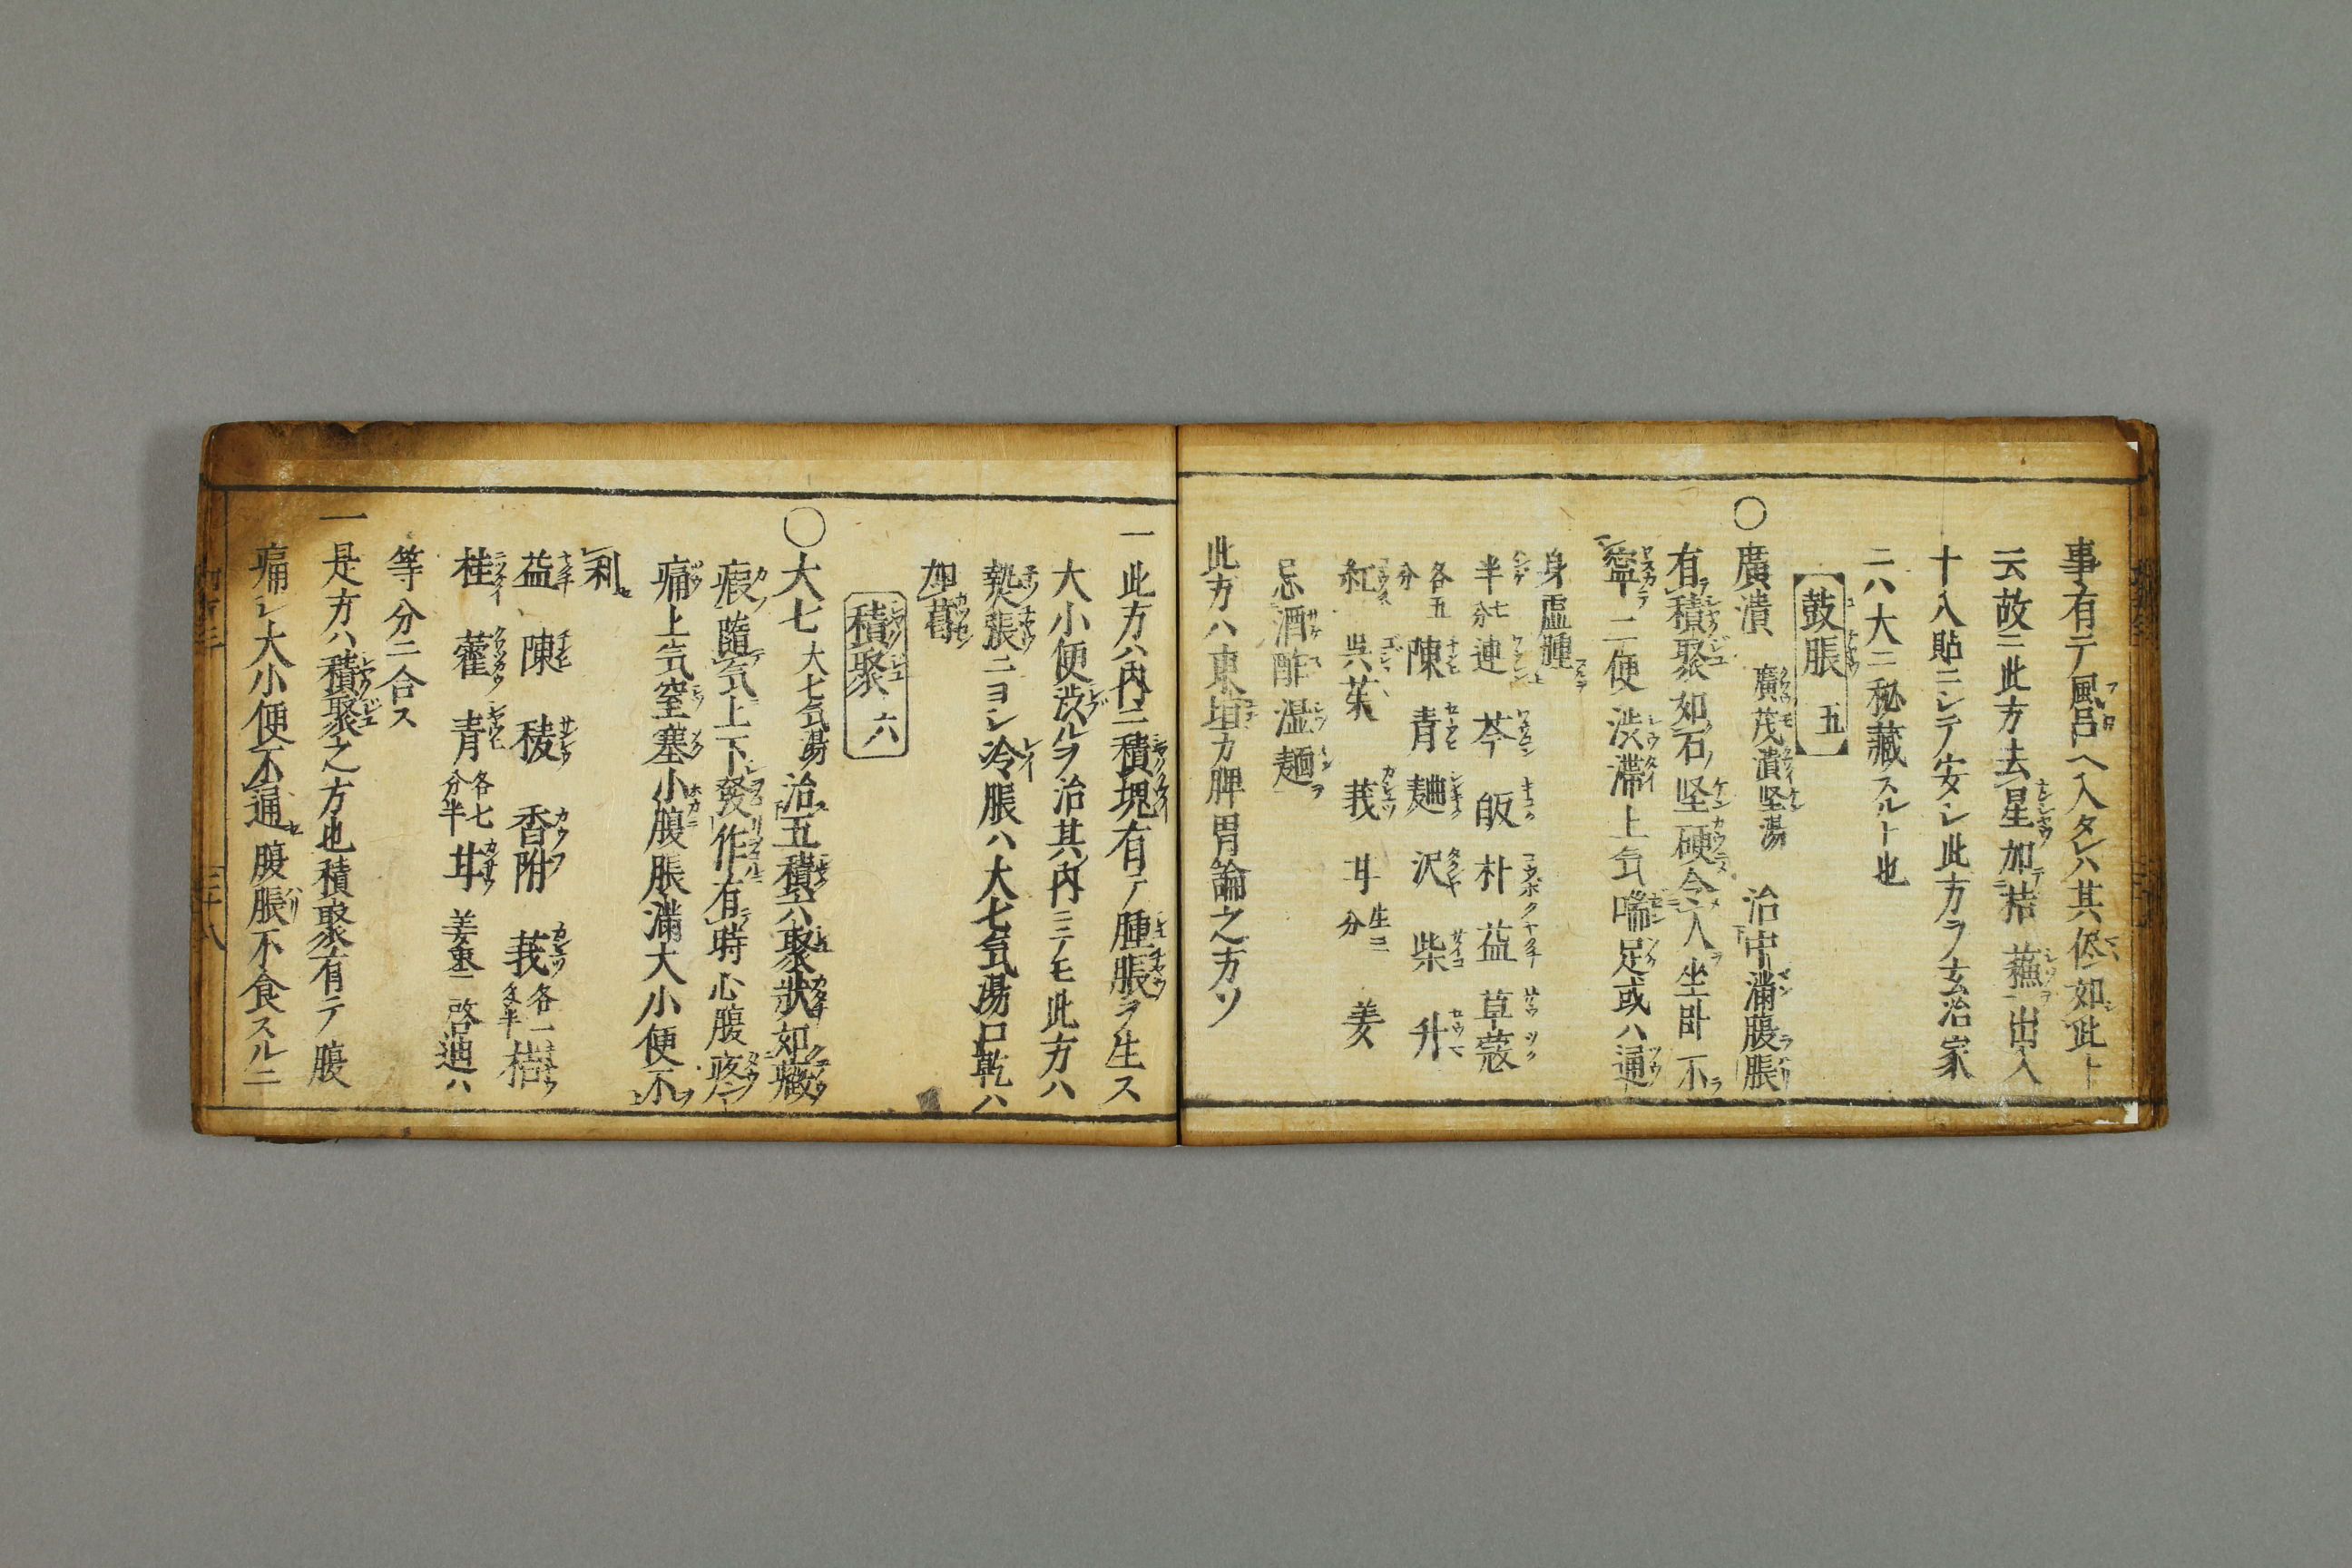 事有テ風呂ヘ入タレハ其侭如此ト
云故ニ此方去星加桔蕪出入
十八貼ニシテ安シ此方ヲ玄治家
ニハ大ニ秘藏スルト也
鼓脹 五
○廣潰 廣茂潰堅湯 治中滿腹脹
有積聚如石坚硬令人坐卧不
寧二便渋滯上気喘足或ハ通
身虚腫
半七分連芩皈朴益草蔲
各五分陳青麯沢柴升
紅呉茱莪甘生三分姜
忌酒酢湿麺
此方ハ東垣カ脾胃論之方ソ
一此方ハ内ニ積塊有テ腫脹ヲ生ス
大小便渋ルヲ治其内ニテモ此方ハ
熱脹ニヨシ冷脹ハ大七気湯口乾ハ
加葛
積聚 六
○大七 大七気湯 治五積六聚状如癥
瘕隨気上下發作有時心腹疼
痛上気窒塞小腹脹滿大小便不
利
益陳稜香附莪各一匁半桔
桂藿青各七分半甘姜棗一啓迪ハ
等分ニ合ス
一是方ハ積聚之方也積聚有テ腹
痛シ大小便不通腹脹不食スルニ